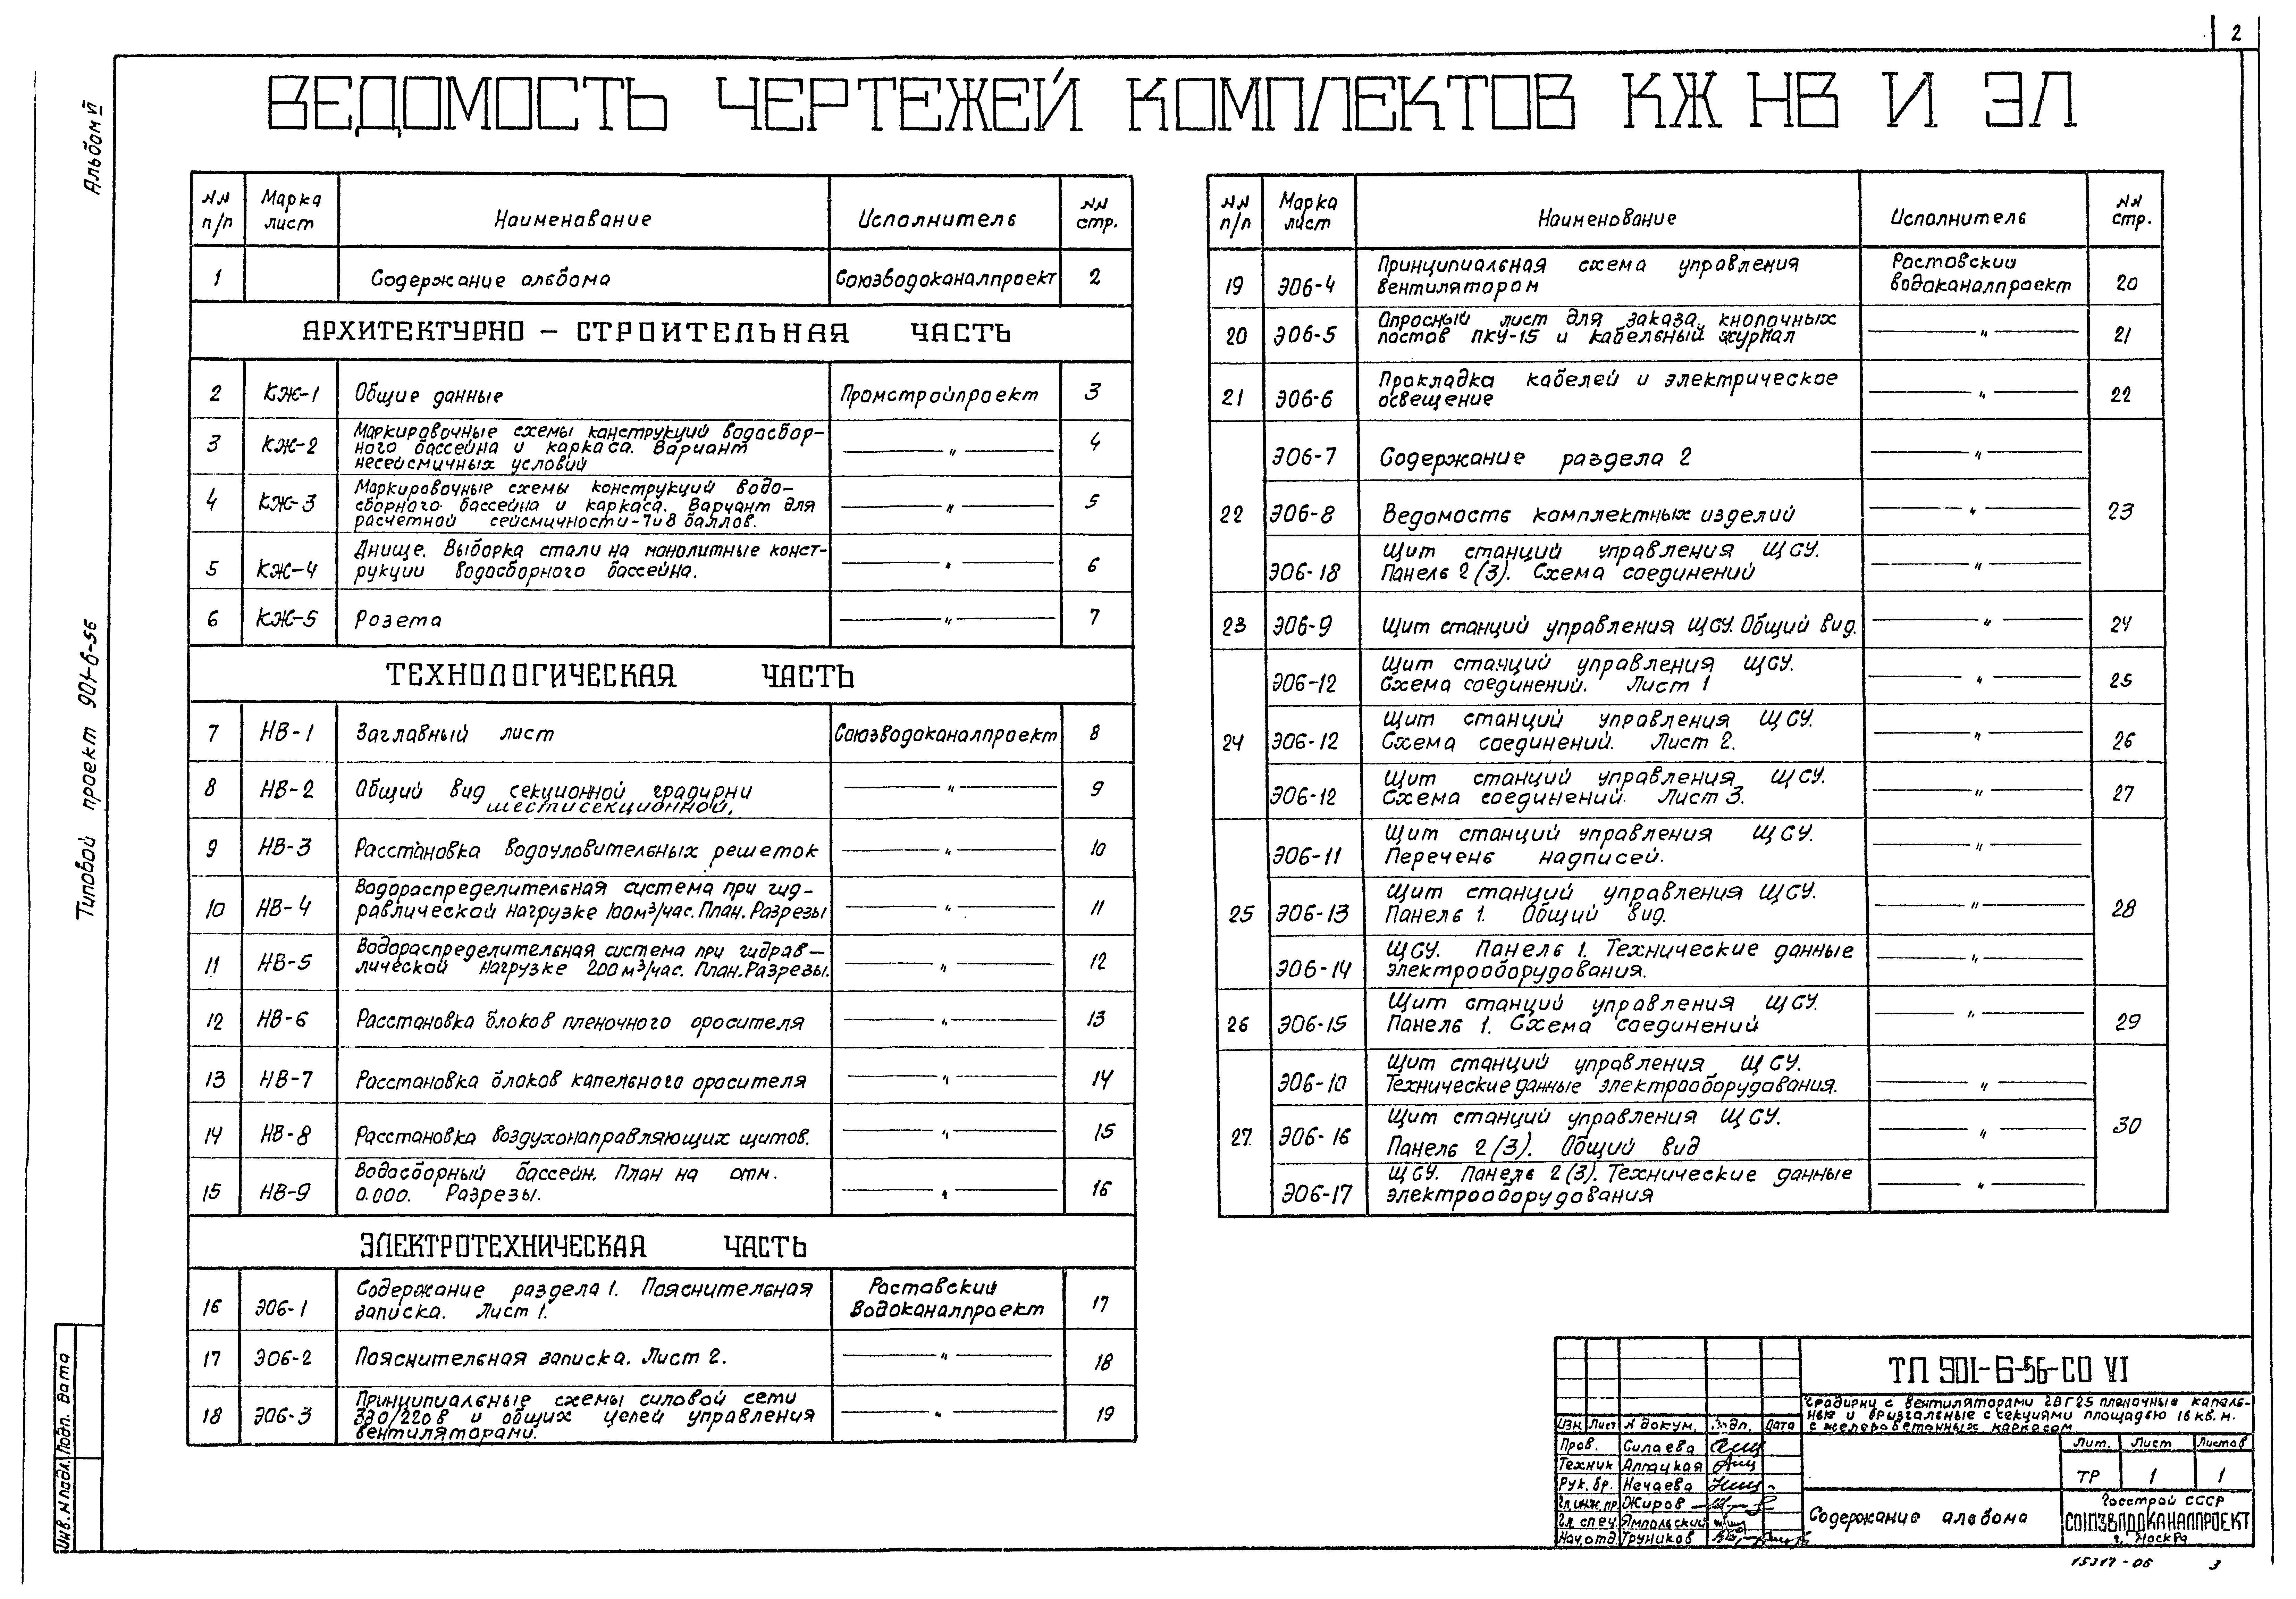 2
Альбом VI
Типовой проект 901-6-56
ВЕДОМОСТЬ ЧЕРТЕЖЕЙ КОМПЛЕКТОВ КЖ НВ И ЭЛ
NN п/п Марка лист Наименование Исполнитель NN стр.
1 Содержание альбома Союзводоканалпроект 2
АРХИТЕКТУРНО – СТРОИТЕЛЬНАЯ ЧАСТЬ
2 КЖ-1 Общие данные Промстройпроект 3
3 КЖ-2 Маркировочные схемы конструкций водосбор-
ного бассейна и каркаса. Вариант
несейсмичных условий — " — 4
4 КЖ-3 Маркировочные схемы конструкций водо-
сборного бассейна и каркаса. Вариант для
расчетной сейсмичности-7и8 баллов. — " — 5
5 КЖ-4 Днище. Выборка стали на монолитные конст-
рукции водосборного бассейна. — " — 6
6 КЖ-5 Розета — " — 7
ТЕХНОЛОГИЧЕСКАЯ ЧАСТЬ
7 НВ-1 Заглавный лист Союзводоканалпроект 8
8 НВ-2 Общий вид секционной градирни
шестисекционной. — " — 9
9 НВ-3 Расстановка водоуловительных решеток — " — 10
10 НВ-4 Водораспределительная система при гид-
равлической нагрузке 100м³/час. План. Разрезы — " — 11
11 НВ-5 Водораспределительная система при гидрав-
лической нагрузке 200м³/час. План. Разрезы. — " — 12
12 НВ-6 Расстановка блоков пленочного оросителя — " — 13
13 НВ-7 Расстановка блоков капельного оросителя — " — 14
14 НВ-8 Расстановка воздухонаправляющих щитов. — " — 15
15 НВ-9 Водосборный бассейн. План на отм.
0.000. Разрезы. — " — 16
ЭЛЕКТРОТЕХНИЧЕСКАЯ ЧАСТЬ
16 ЭО6-1 Содержание раздела 1. Пояснительная
записка. Лист 1. Ростовский Водоканалпроект 17
17 ЭО6-2 Пояснительная записка. Лист 2. — " — 18
18 ЭО6-3 Принципиальные схемы силовой сети
380/220в и общих цепей управления
вентиляторами. — " — 19
NN п/п Марка лист Наименование Исполнитель NN стр.
19 ЭО6-4 Принципиальная схема управления
вентилятором Ростовский водоканалпроект 20
20 ЭО6-5 Опросный лист для заказа кнопочных
постов ПКУ-15 и кабельный журнал — " — 21
21 ЭО6-6 Прокладка кабелей и электрическое
освещение — " — 22
ЭО6-7 Содержание раздела 2 — " —
22 ЭО6-8 Ведомость комплектных изделий — " — 23
ЭО6-18 Щит станций управления ЩСУ.
Панель 2(3). Схема соединений — " —
23 ЭО6-9 Щит станций управления ЩСУ. Общий вид. — " — 24
ЭО6-12 Щит станций управления ЩСУ.
Схема соединений. Лист 1 — " — 25
24 ЭО6-12 Щит станций управления ЩСУ.
Схема соединений. Лист 2. — " — 26
ЭО6-12 Щит станций управления ЩСУ.
Схема соединений. Лист 3. — " — 27
ЭО6-11 Щит станций управления ЩСУ.
Перечень надписей. — " —
25 ЭО6-13 Щит станций управления ЩСУ.
Панель 1. Общий вид. — " — 28
ЭО6-14 ЩСУ. Панель 1. Технические данные
электрооборудования. — " —
26 ЭО6-15 Щит станций управления ЩСУ.
Панель 1. Схема соединений — " — 29
ЭО6-10 Щит станций управления ЩСУ.
Технические данные электрооборудования. — " —
27. ЭО6-16 Щит станций управления ЩСУ.
Панель 2(3). Общий вид — " — 30
ЭО6-17 ЩСУ. Панель 2(3). Технические данные
электрооборудования — " —
ТП 901-6-56-СО VI
Градирни с вентиляторами 2ВГ25 пленочные капель-
ные и брызгальные с секциями площадью 16 кв.м.
с железобетонных каркасом
Изм Лист N докум. Подп. Дата
Пров. Силаева
Техник Алпацкая
Рук.бр. Нечаева
Гл.инж.пр. Жиров
Гл.спец. Ямпольский
Нач.отд. Труников
Лит. Лист Листов
ТР 1 1
Содержание альбома
Госстрой СССР
СОЮЗВОДОКАНАЛПРОЕКТ
г. Москва
Инв. N подл. Подп. Дата
15317-06 3